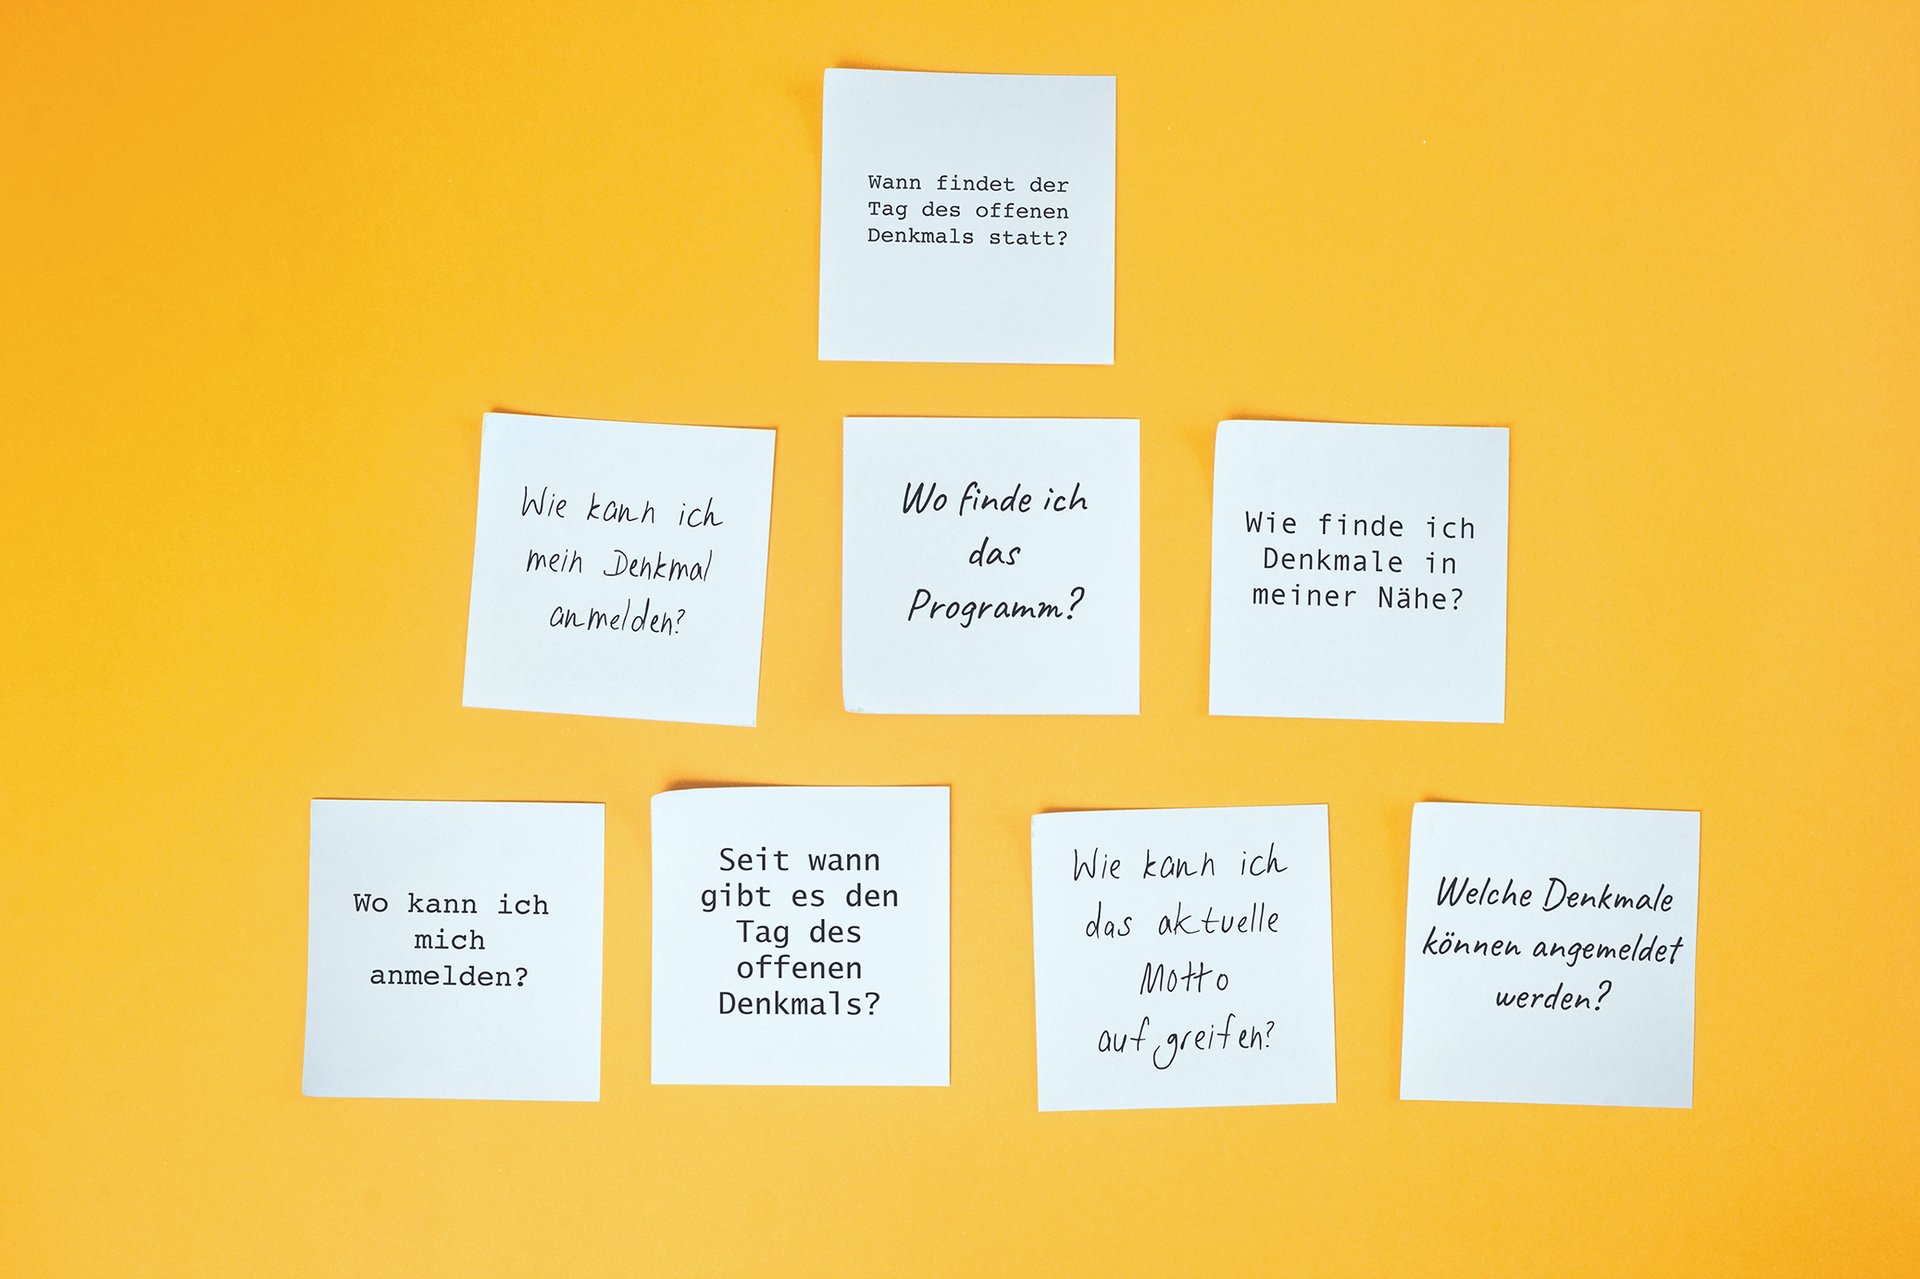 Wann findet der
Tag des offenen
Denkmals statt?
Wie kann ich
mein Denkmal
anmelden?
Wo finde ich
das
Programm?
Wie finde ich
Denkmale in
meiner Nähe?
Wo kann ich
mich
anmelden?
Seit wann
gibt es den
Tag des
offenen
Denkmals?
Wie kann ich
das aktuelle
Motto
aufgreifen?
Welche Denkmale
können angemeldet
werden?